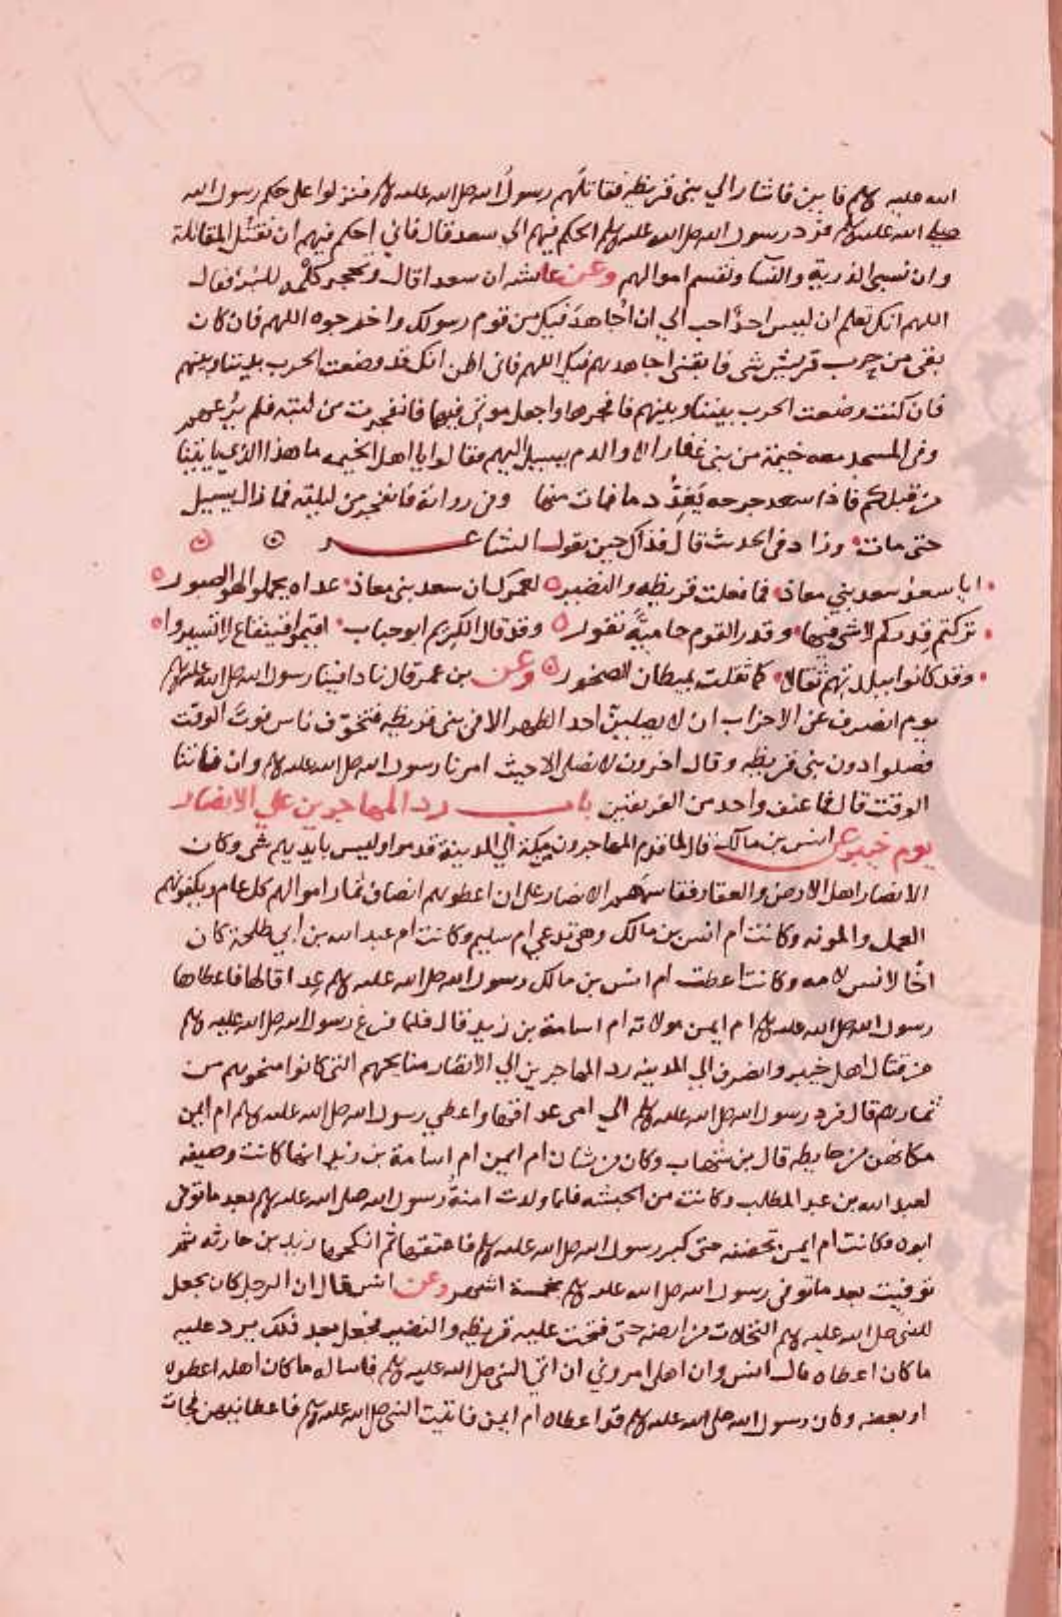 الله عليه وسلم فاين فاشار الي بني قريظه فقاتلهم رسول الله صلى الله عليه وسلم فنزلوا على حكم رسول الله
صلى الله عليه وسلم فرد رسول الله صلى الله عليه وسلم الحكم فيهم الي سعد قال فاني احكم فيهم ان تقتل المقاتلة
وان تسبى الذرية والنسا وتقسم اموالهم وعن عايشه ان سعدا قال وتحجر كلمه للبرء فقال
اللهم انك تعلم ان ليس احد احب الي ان اجاهد فيك من قوم رسولك واخرجوه اللهم فان كان
بقي من حرب قريش شي فابقني اجاهدهم فيك اللهم فاني اظن انك قد وضعت الحرب بيننا وبينهم
فان كنت وضعت الحرب بيننا وبينهم فافجرها واجعل موتي فيها فانفجرت من لبته فلم يرعهم
وفي المسجد معه خيمة من بني غفار الا والدم يسيل اليهم فقالوا يا اهل الخيمه ما هذا الذي ياتينا
من قبلكم فاذا سعد جرحه يغذ دما فمات منها وفي رواية فانفجر من ليلته فما زال يسيل
حتى مات وزاد في الحديث قال فذاك حين يقول الشاعر
ايا سعد سعد بني معاذ فما فعلت قريظه والنضير لعمرك ان سعد بني معاذ غداه تحملوا لهو الصبور
تركتم قدركم لا شي فيها وقدر القوم حامية تفور وقد قال الكريم ابو حباب اقيموا قينقاع لا تسيروا
وقد كانوا ببلدتهم ثقالا كما ثقلت بميطان الصخور وعن بن عمر قال نادا فينا رسول الله صلى الله عليه وسلم
يوم انصرف عن الاحزاب ان لا يصلين احد الظهر الا في بني قريظه فتخوف ناس فوت الوقت
فصلوا دون بني قريظه وقال اخرون لا نصلي الا حيث امرنا رسول الله صلى الله عليه وسلم وان فاتنا
الوقت قال فما عنف واحد من الفريقين باب رد المهاجرين علي الانصار
يوم خيبر عن انس بن مالك قال لما قدم المهاجرون مكة الي المدينة قدموا وليس بايديهم شي وكان
الانصار اهل الارض والعقار فقاسمهم الانصار على ان اعطوهم انصاف ثمار اموالهم كل عام ويكفونهم
العمل والمونه وكانت ام انس بن مالك وهي تدعي ام سليم وكانت ام عبد الله بن ابي طلحة كان
اخا لانس لامه وكانت اعطت ام انس بن مالك رسول الله صلى الله عليه وسلم عداقا لها فاعطاها
رسول الله صلى الله عليه وسلم ام ايمن مولاته ام اسامة بن زيد قال فلما فرغ رسول الله صلى الله عليه وسلم
من قتال اهل خيبر وانصرف الي المدينه رد المهاجرين الي الانصار منايحهم التي كانوا منحوهم من
ثمارهم قال فرد رسول الله صلى الله عليه وسلم الي امي عداقها واعطي رسول الله صلى الله عليه وسلم ام ايمن
مكانهن من حايطه قال بن شهاب وكان من شان ام ايمن ام اسامة بن زيد انها كانت وصيفه
لعبد الله بن عبد المطلب وكانت من الحبشه فلما ولدت امنة رسول الله صلى الله عليه وسلم بعد ما توفي
ابوه وكانت ام ايمن تحضنه حتى كبر رسول الله صلى الله عليه وسلم فاعتقها ثم انكحها زيد بن حارثه ثم
توفيت بعد ما توفي رسول الله صلى الله عليه وسلم بخمسة اشهر وعن انس قال ان الرجل كان يجعل
للنبي صلى الله عليه وسلم النخلات من ارضه حتى فتحت عليه قريظه والنضير فجعل بعد ذلك يرد عليه
ما كان اعطاه قال انس وان اهلي امروني ان اتي النبي صلى الله عليه وسلم فاساله ما كان اهله اعطوه
او بعضه وكان رسول الله صلى الله عليه وسلم قد اعطاه ام ايمن فاتيت النبي صلى الله عليه وسلم فاعطانيهن فجات